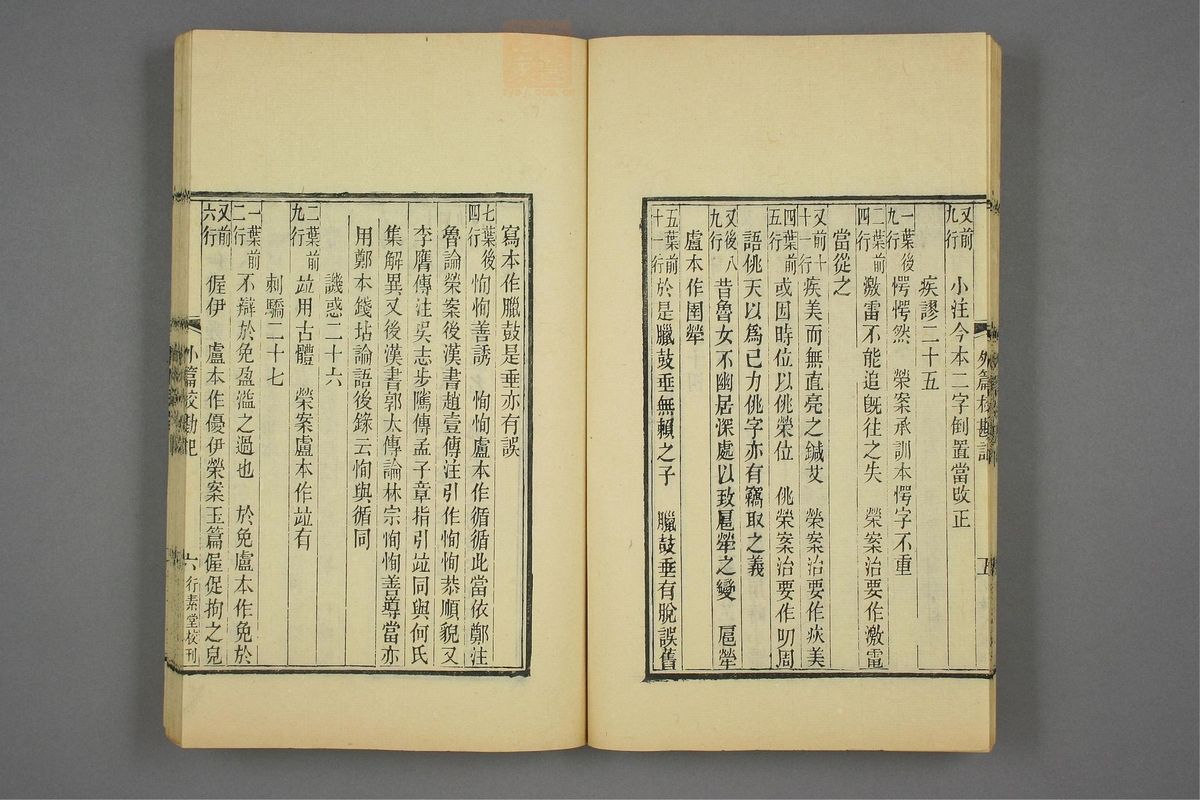 又前九行 小注今本二字倒置當改正
疾謬二十五
一葉後九行 愕愕然 榮案承訓本愕字不重
二葉前四行 激雷不能追既往之失 榮案治要作激電
當從之
又前十十一行 疾美而無直亮之鍼艾 榮案治要作疢美
四葉前五行 或因時位以佻榮位 佻榮案治要作叨周
語佻天以爲己力佻字亦有竊取之義
又後八九行 昔魯女不幽居深處以致扈犖之變 扈犖
盧本作圉犖
五葉前十一行 於是臘鼓垂無賴之子 臘鼓垂有脫誤舊
外篇校勘記 五
寫本作臘鼓是垂亦有誤
七葉後四行 恂恂善誘 恂恂盧本作循循此當依鄭注
魯論榮案後漢書趙壹傳注引作恂恂恭順貌又
李膺傳注吴志步騭傳孟子章指引竝同與何氏
集解異又後漢書郭太傳論林宗恂恂善導當亦
用鄭本錢坫論語後錄云恂與循同
譏惑二十六
二葉前九行 竝用古體 榮案盧本作竝有
刺驕二十七
一葉前二行 不辯於免盈溢之過也 於免盧本作免於
又前六行 偓伊 盧本作優伊榮案玉篇偓促拘之皃
外篇校勘記 六 行素堂校刊